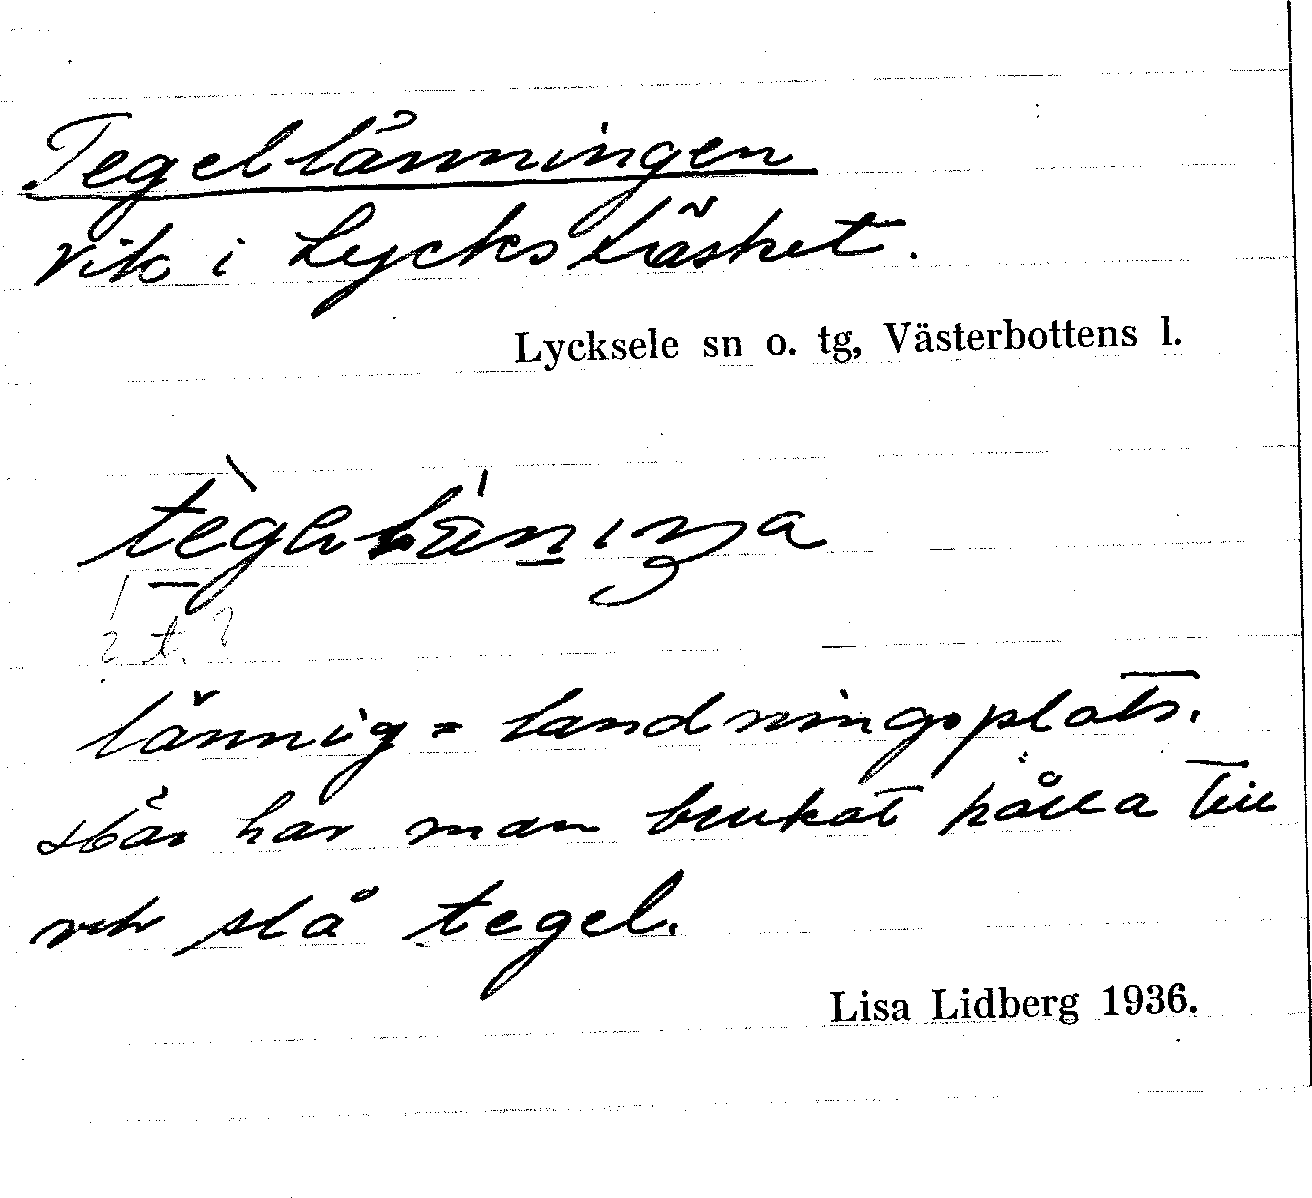 Tegellänningen
vik i Lycksträsket.
Lycksele sn o. tg, Västerbottens l.
? t. ?
lännig = landningsplats.
Här har man brukat hålla till
och slå tegel.
Lisa Lidberg 1936.